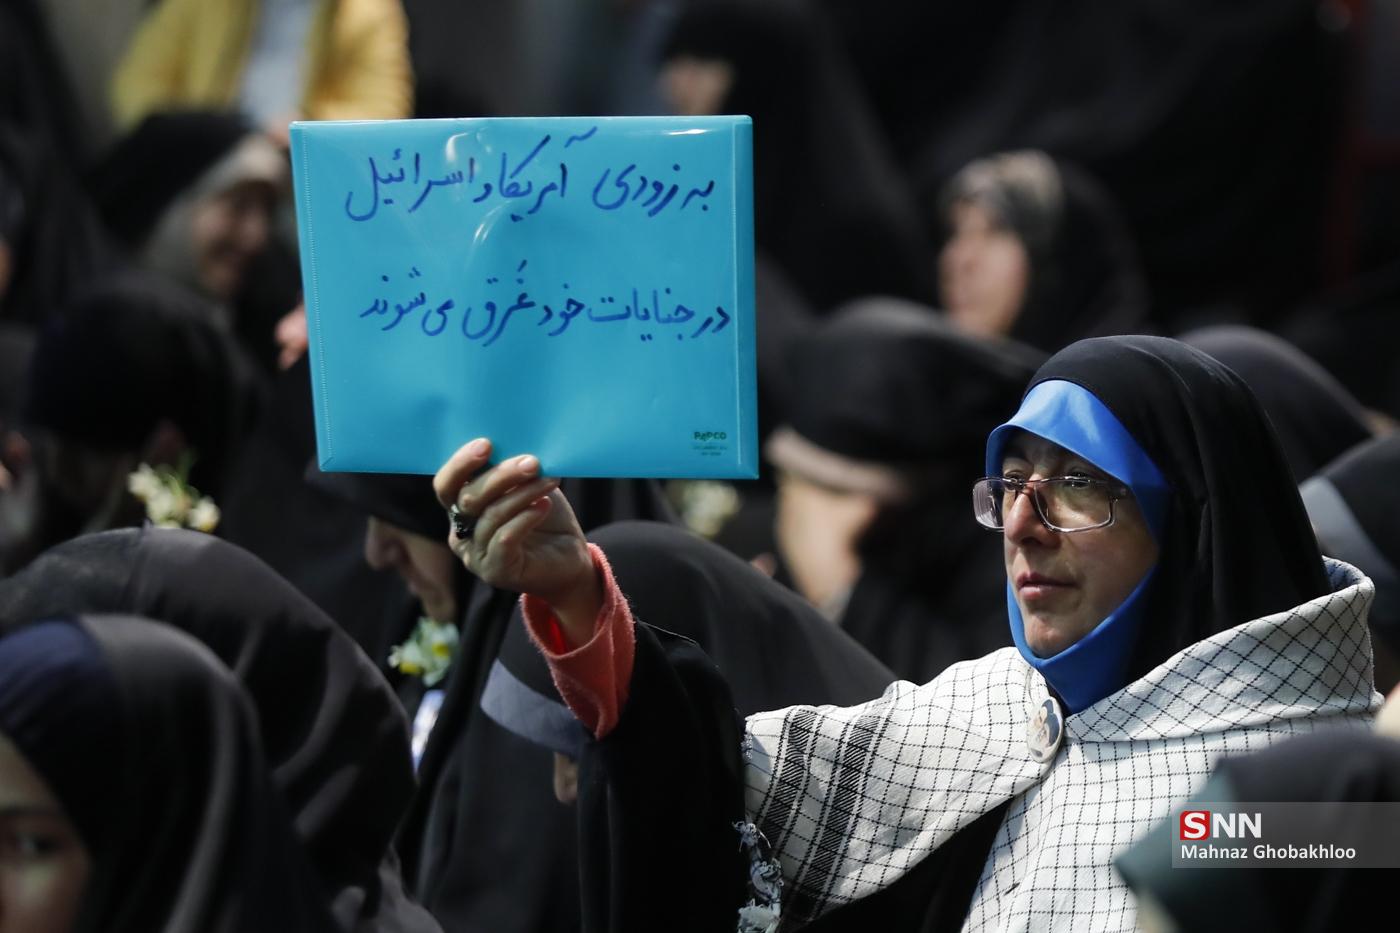 به زودی آمریکا و اسرائیل
در جنایات خود غَرق می شوند
PAPCO
SNN
Mahnaz Ghobakhloo